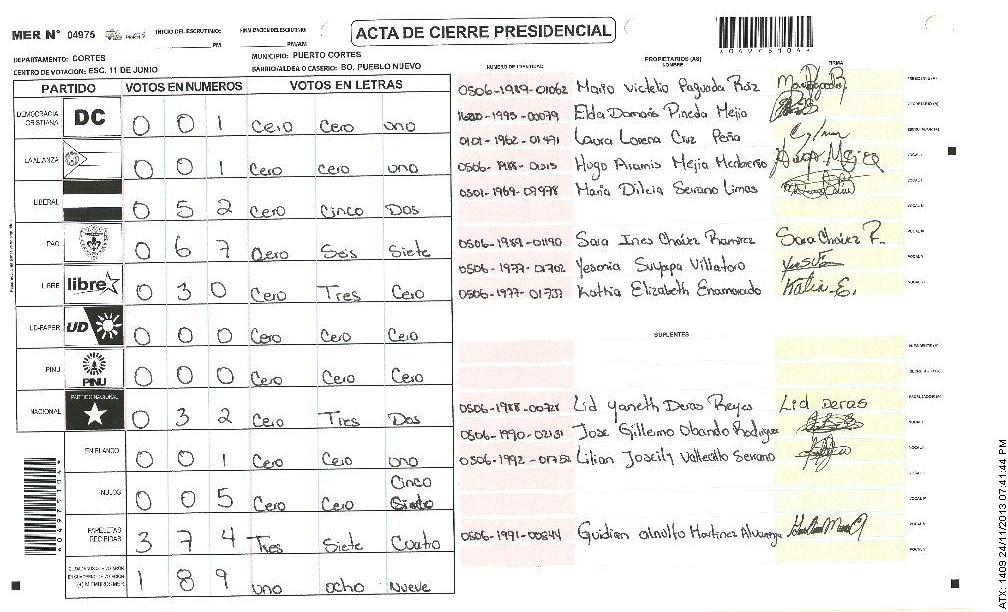 MER N° 04975
INICIO DEL ESCRUTINIO:
PM
FINALIZACION ESCRUTINIO:
PM/AM
ACTA DE CIERRE PRESIDENCIAL
DEPARTAMENTO: CORTES
MUNICIPIO: PUERTO CORTES
CENTRO DE VOTACION: ESC. 11 DE JUNIO
BARRIO/ALDEA O CASERIO: BO. PUEBLO NUEVO
PARTIDO VOTOS EN NUMEROS VOTOS EN LETRAS
DEMOCRACIA CRISTIANA DC 0 0 1 Cero Cero uno
LA ALIANZA 0 0 1 Cero cero uno
LIBERAL 0 5 2 Cero Cinco Dos
PAC 0 6 7 Cero Seis Siete
LIBRE libre 0 3 0 Cero Tres Cero
UD-FAPER UD 0 0 0 Cero Cero Cero
PINU PINU 0 0 0 Cero Cero Cero
NACIONAL PARTIDO NACIONAL 0 3 2 Cero Tres Dos
EN BLANCO 0 0 1 Cero Cero uno
NULOS 0 0 5 Cero Cero Cinco
PAPELETAS RECIBIDAS 3 7 4 Tres Siete Cuatro
1 8 9 uno ocho Nueve
NUMERO DE IDENTIDAD
PROPIETARIOS (AS)
NOMBRE
FIRMA
0506-1989-01062 Mario Victelio Paguada Ruiz
Elda Damaris Pineda Mejia
0101-1962-01471 Laura Lorena Cruz Peña
Hugo Aramis Mejia
0501-1969-07978 Maria Dilcia Serrano Limas
0506-1989-01190 Sara Ines Chávez Ramirez Sara Chávez R.
0506-1977-01702 Yesenia Suyapa Villatoro
0506-1977-01737 Kattia Elizabeth Enamorado Katia E.
SUPLENTES
0506-1988-00728 Lid Yaneth Deras Reyes Lid Deras
0506-1990-02131 Jose Gillermo Obando Rodriguez
0506-1992-01752 Lilian Joseily Vallecillo Serrano
0506-1991-00844 Guidian Martinez
ATX: 1409 24/11/2013 07:41:44 PM